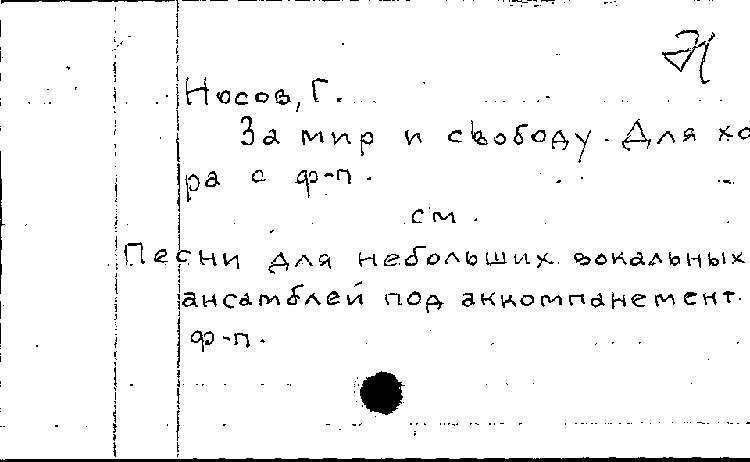 Носов, Г.
За мир и свободу. Для хо
ра с ф-п.
см.
Песни для небольших вокальных
ансамблей под аккомпанемент.
ф-п.